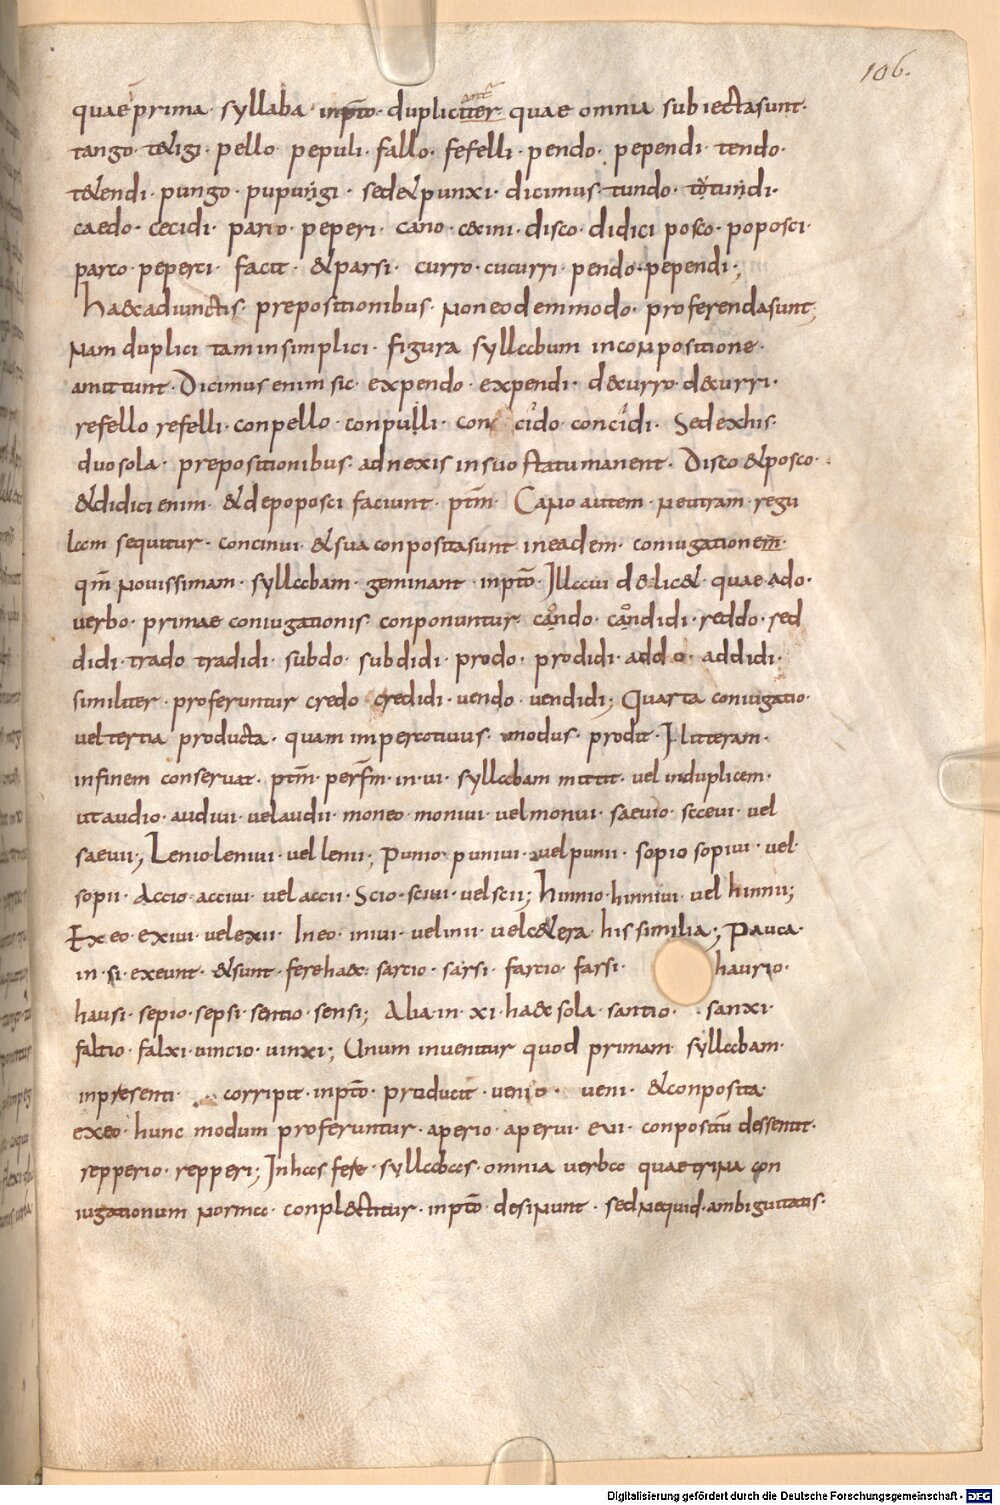 106.
quae prima · syllaba · inpto · dupliciter · quae omnia subiectasunt ·
tango · tetigi · pello pepuli · fallo · fefelli · pendo · pependi · tendo ·
tetendi · pungo · pupungi · sed et punxi · dicimus · tundo · tutundi ·
caedo · cecidi · pario · peperi · cano · cecini · disco · didici posco · poposci ·
parco · peperci · facit · & parsi · curro · cucurri · pendo · pependi ;
haec adiunctis · prepositionibus · non eodem modo · proferenda sunt ;
Nam duplici tam in simplici · figura syllabum incompositione ·
amittunt · Dicimus enim sic · expendo · expendi · decurro · decurri ·
refello refelli · conpello · conpulli · con cido · concidi · Sed exhis ·
duo sola · prepositionibus · adnexis insuo statu manent · Disco & posco ·
& didici enim · & depoposci faciunt · ptm · Cano autem · neutram · regu
lam sequitur · concinui · & sua conposita sunt ineadem · coniugationem ·
qm novissimam · syllabam · geminant · inpto · Illa cui delicet · quae ado ·
verbo · primae coniugationis conponuntur · condo · condidi · reddo · red
didi · trado tradidi · subdo · subdidi · prodo · prodidi · addo · addidi ·
similiter · proferuntur credo credidi · vendo · vendidi ; Quarta coniugatio ·
vel tertia producta · quam impercotivus · modus · prodit · I litteram ·
infinem conservat · ptm · perfm · in · vi · syllabam mittit · vel induplicem ·
ut audio · audivi · vel audii · moneo · monivi · vel monui · saevio · saevi · vel
saevii ; Lenio lenivi · vel lenii ; Punio · punivi · vel punii · sopio sopivi · vel ·
sopii · Accio · accivi · vel accii · Scio · scivi · vel scii ; hinnio · hinnivi · vel hinnii ;
Exeo · exivi · vel exii · Ineo · inivi · vel inii · vel cetera · his similia ; Pauca ·
in · si · exeunt · & sunt · fere haec · sarcio · sarsi · farcio · farsi · haurio ·
hausi · sepio · sepsi · sentio · sensi ; Alia · in · xi · haec sola · sancio · sanxi ·
falcio · falxi · vincio · vinxi ; Unum invenitur quod primam syllabam ·
inpresenti · corripit · inpto · producit · venio · veni · & conposita ·
exeo · hunc modum proferuntur · aperio · aperui · evi · conpositu dessentit ·
repperio · repperi ; Inhas fere · syllabas · omnia verba quae trina con
iugationum norma · conplectitur · inpto · desinunt · sed nequid · ambiguitatis ·
Digitalisierung gefördert durch die Deutsche Forschungsgemeinschaft - DFG